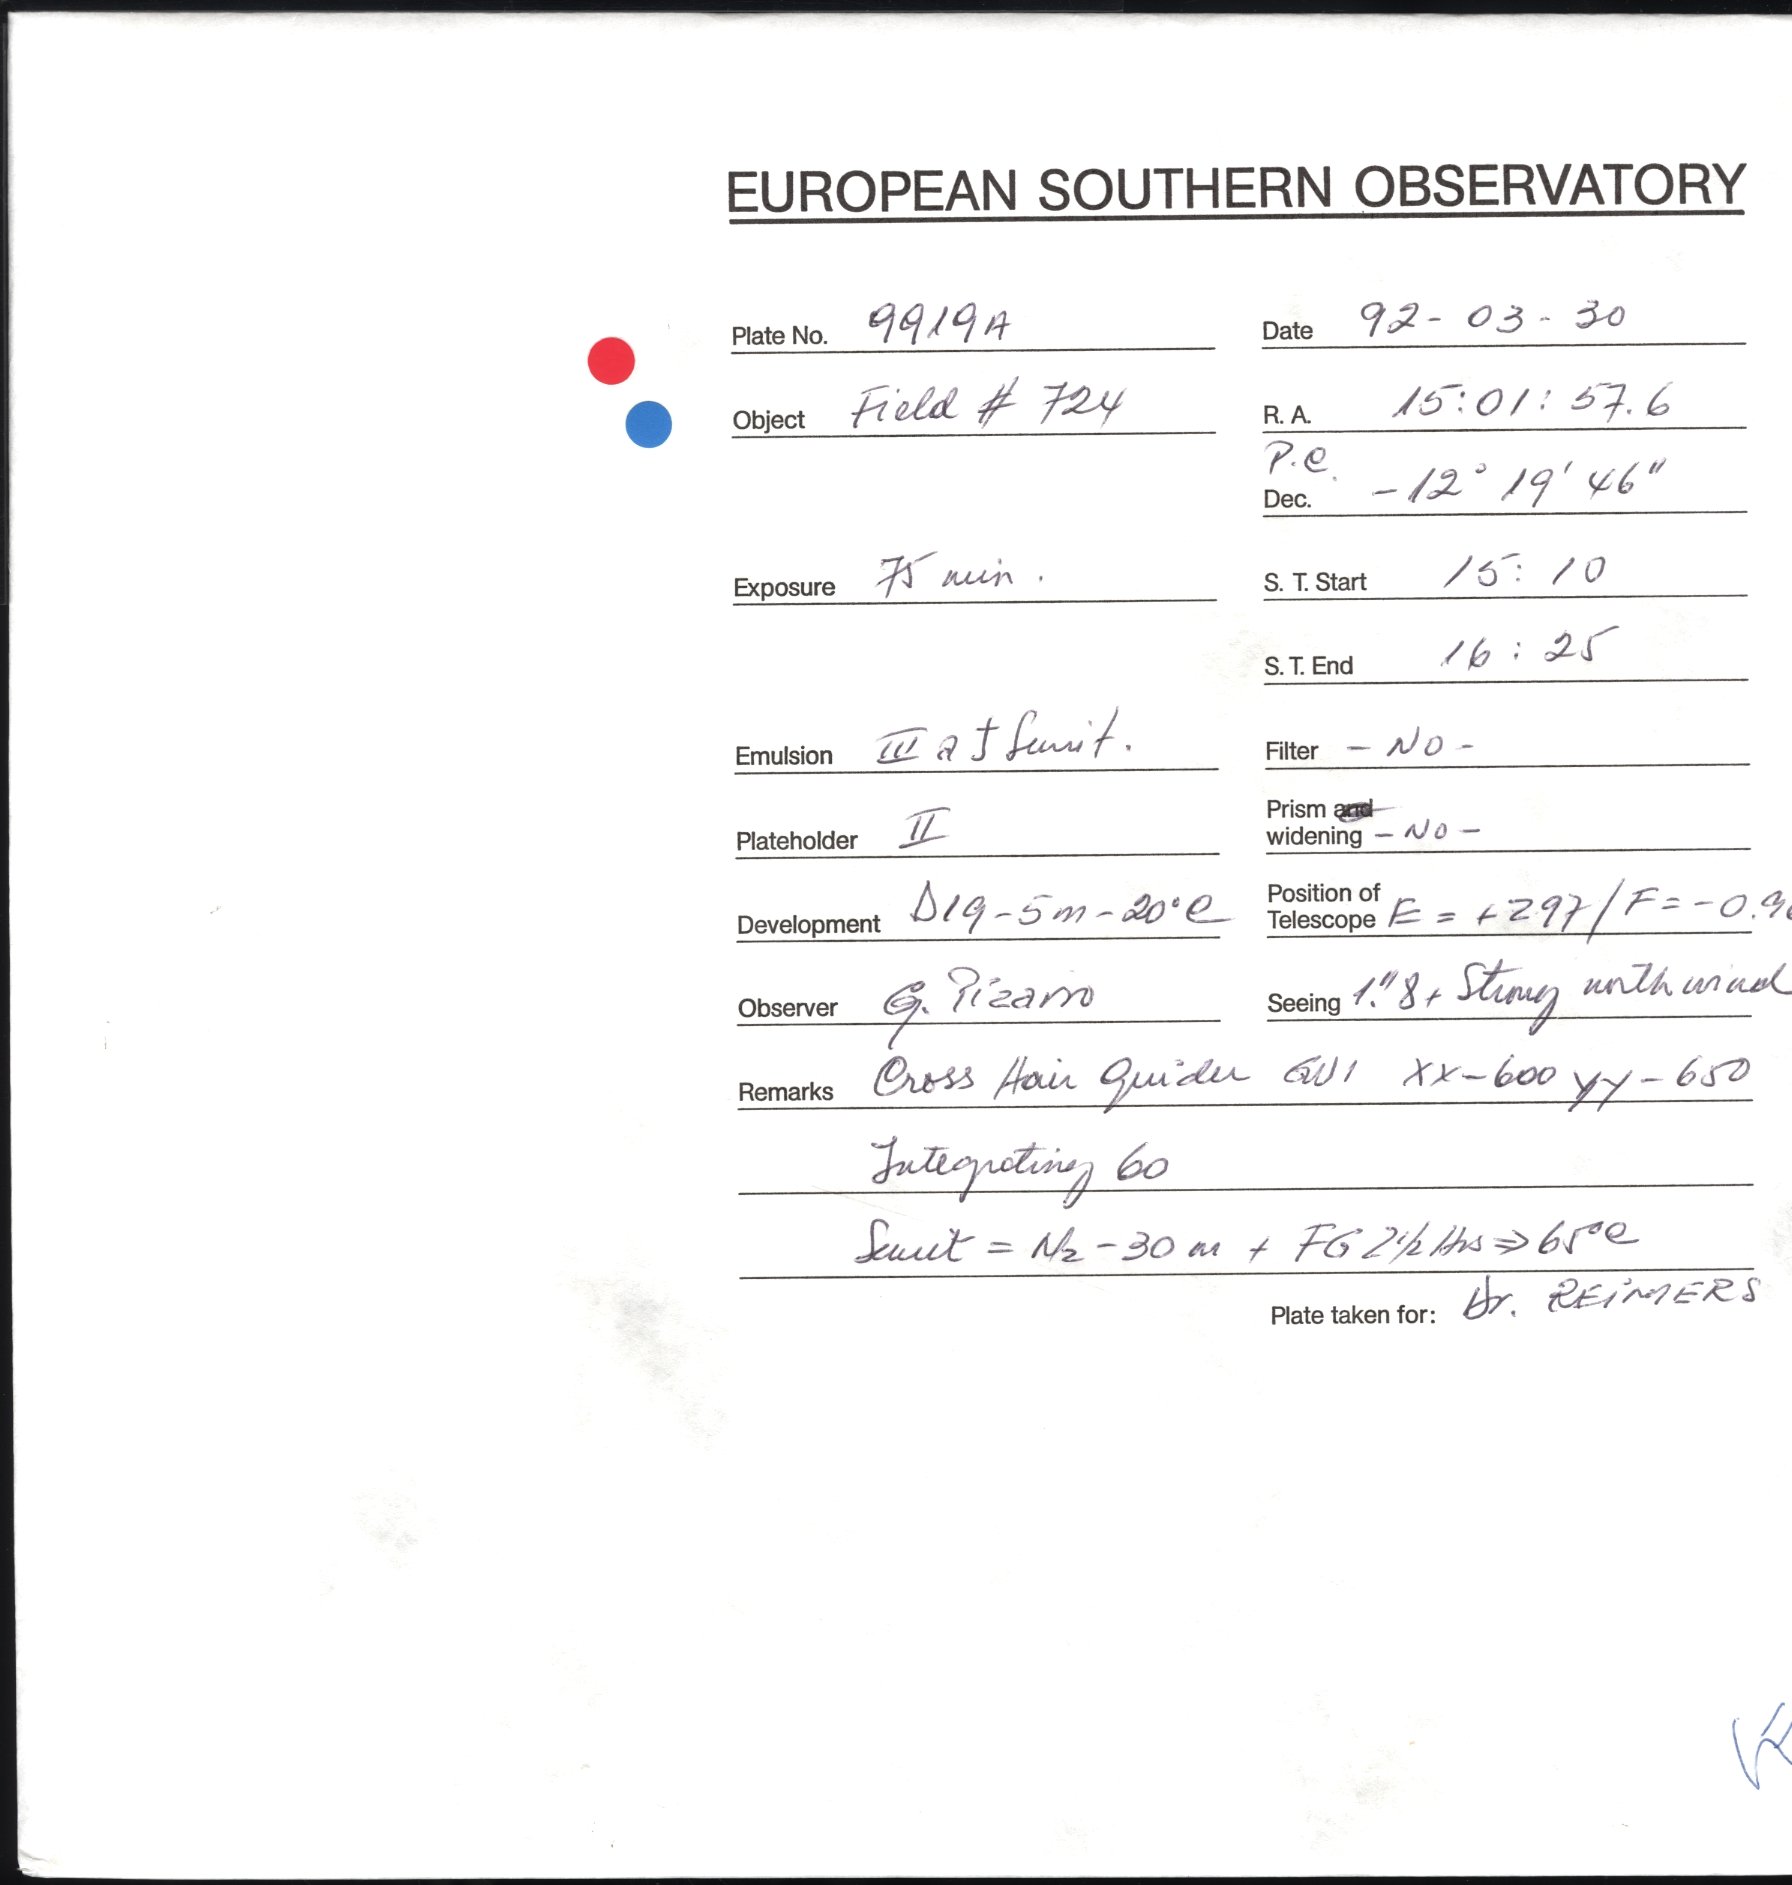 EUROPEAN SOUTHERN OBSERVATORY
Plate No. 9919A Date 92-03-30
Object Field # 724 R. A. 15:01:57.6
P.C.
Dec. -12° 19' 46"
Exposure 75 min. S. T. Start 15:10
S. T. End 16:25
Emulsion III a J Sensit. Filter - NO -
Plateholder II Prism and widening - NO -
Development D19-5m-20°C Position of Telescope E = +297/F=-0.9
Observer G. Pizarro Seeing 1."8+ Strong north wind
Remarks Cross Hair Guider GW1 XX-600 YY-650
Integrating 60
Sensit = N2-30m + FG 2 1/2 Hrs ⇒ 65°C
Plate taken for: Dr. REIMERS